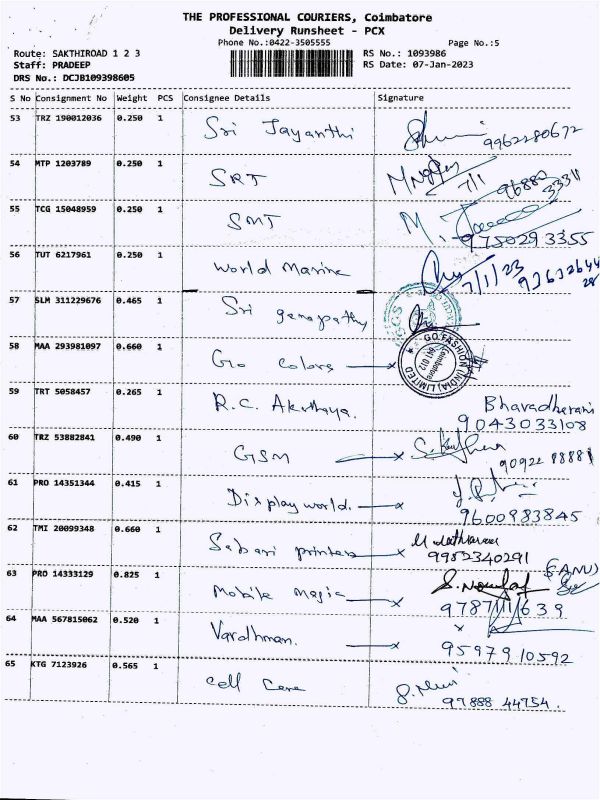 THE PROFESSIONAL COURIERS, Coimbatore
Delivery Runsheet - PCX
Phone No.:0422-3505555
Page No.:5
Route: SAKTHIROAD 1 2 3
RS No.: 1093986
Staff: PRADEEP
RS Date: 07-Jan-2023
DRS No.: DCJB109398605
S No Consignment No Weight PCS Consignee Details Signature
53 TRZ 190012036 0.250 1 Sri Jayanthi 9962280672
54 MTP 1203789 0.250 1 SRT 7/1 96880 33311
55 TCG 15048959 0.250 1 SMT M. 9750293355
56 TUT 6217961 0.250 1 World Marine 7/1/23
57 SLM 311229676 0.465 1 Sri ganapathy
58 MAA 293981097 0.660 1 Go colors x GO FASHION (INDIA) LIMITED 641 012 Coimbatore
59 TRT 5058457 0.265 1 R.C. Akathaya. Bhavadharani
9043033108
60 TRZ 53882841 0.490 1 GSM x 90922 88881
61 PRO 14351344 0.415 1 Display world. x
9600983845
62 TMI 20099348 0.660 1 Sabari printers x
9952340291
63 PRO 14333129 0.825 1 Mobile Magic x S. Noufal
9787111639
64 MAA 567815062 0.520 1 Vardhman. x x
9597910592
65 KTG 7123926 0.565 1 Cell Care
97888 44754.